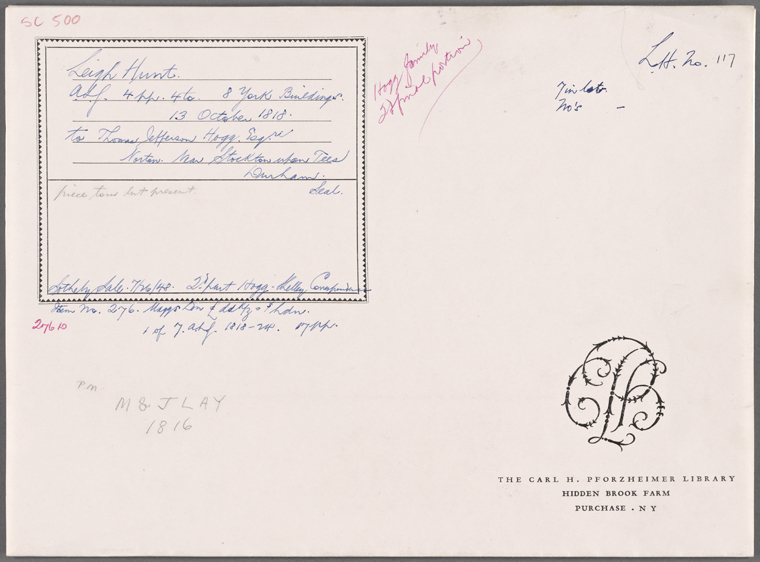 SC 500
Leigh Hunt.
A.L.S. 4 pp. 4to. 8 York Buildings.
13 October 1818.
to Thomas Jefferson Hogg, Esqre
Norton. Near Stockton upon Tees
Durham.
piece torn but present. Seal.
Sotheby Sale. 7/26/48. 2d part Hogg-Shelley Correspondence
Item No. 276. Maggs Bros
1 of 7 a.l.s. 1818-24. 17 pp.
276 10
Hogg family
2d final portion
L.H. No. 117
Tin
No's –
P.M.
M & J LAY
1816
THE CARL H. PFORZHEIMER LIBRARY
HIDDEN BROOK FARM
PURCHASE . NY